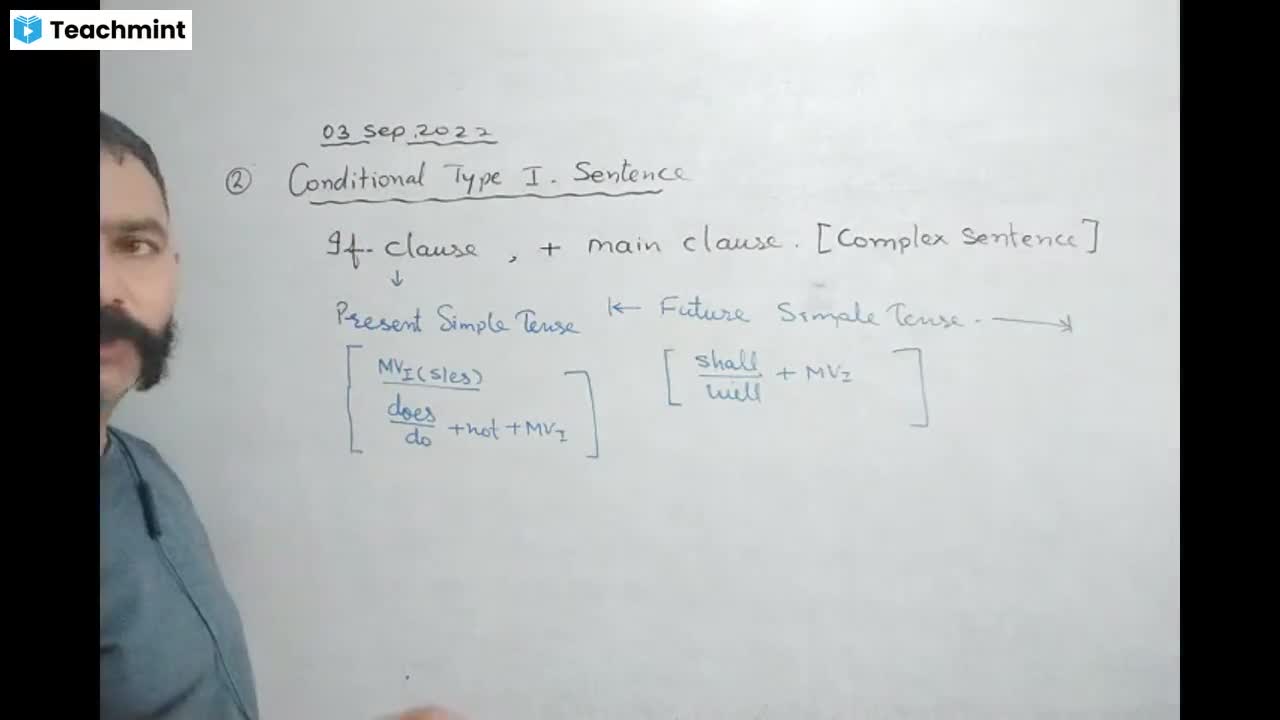 Teachmint
03 Sep. 2022
② Conditional Type I. Sentence
If-clause, + main clause. [Complex Sentence]
↓
Present Simple Tense ← Future Simple Tense. →
MVI (s/es)
does
do + not + MVI
shall
will + MVI